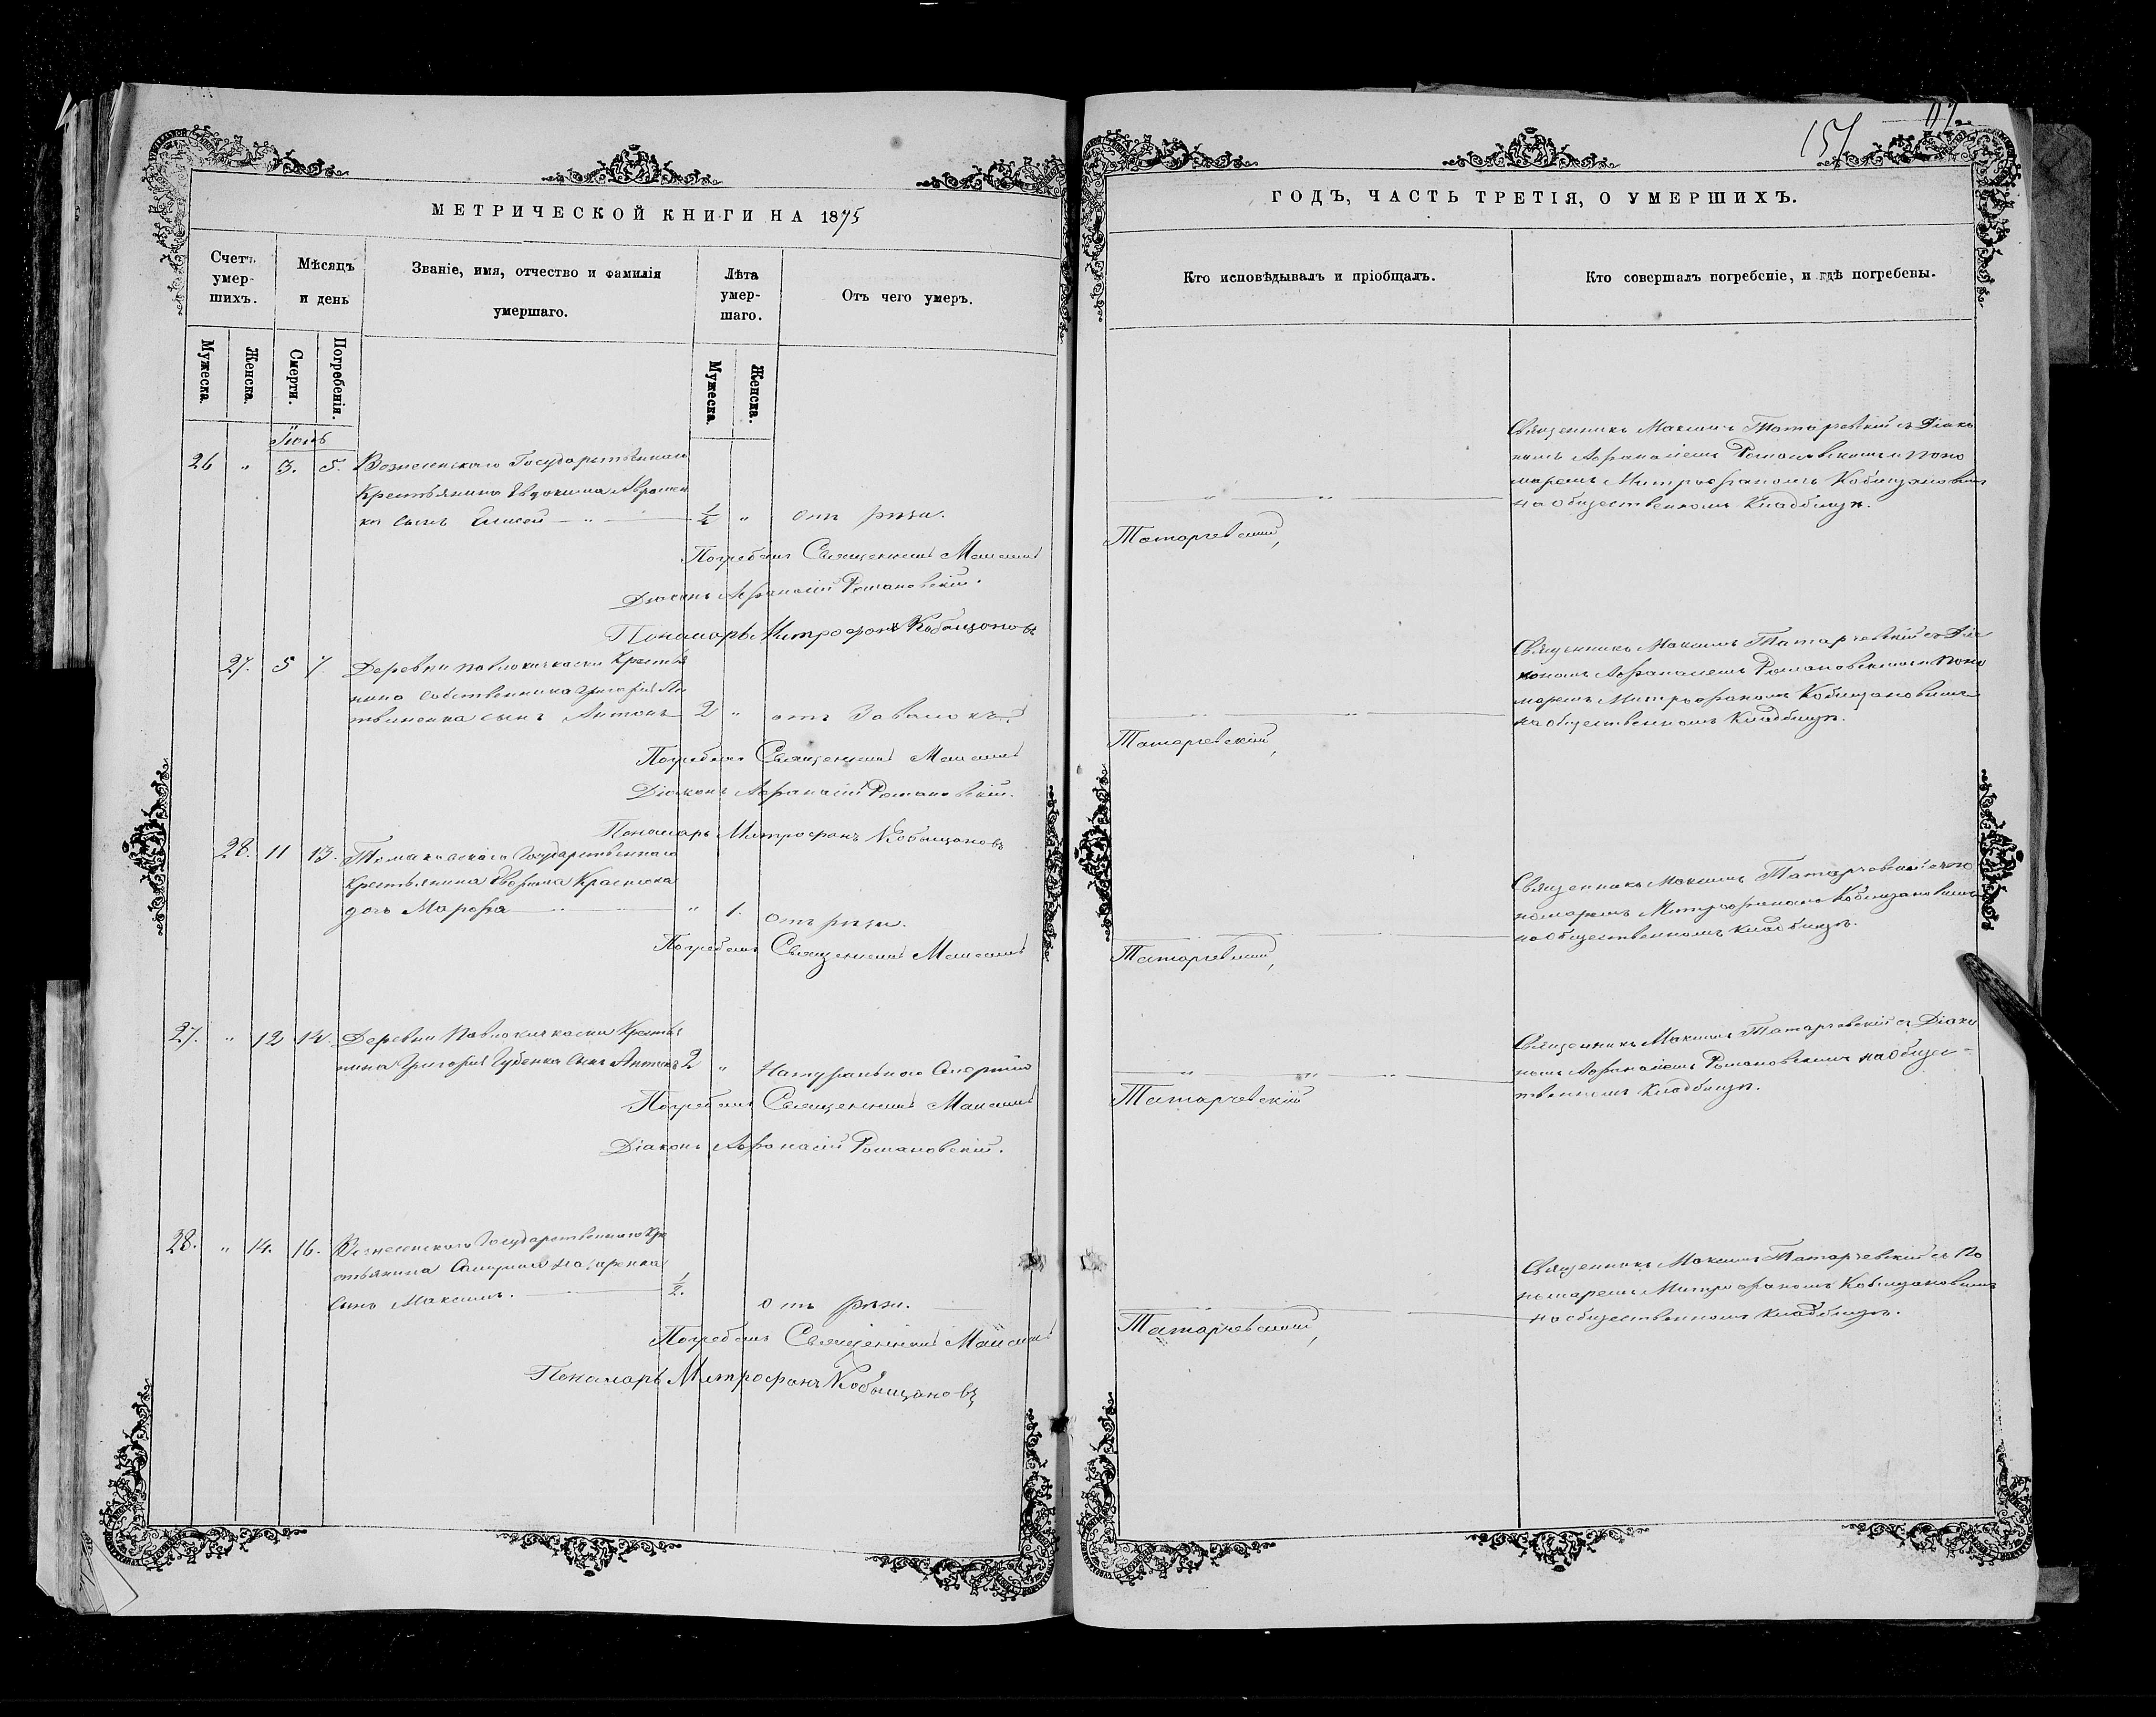 МЕТРИЧЕСКОЙ КНИГИ НА 1875
Счетъ умер-шихъ.
Мѣсяцъ и день
Званіе, имя, отчество и фамилія умершаго.
Лѣта умер-шаго.
Отъ чего умеръ.
Мужеска.
Женска.
Смерти.
Погребенія.
Мужеска
Женска.
Іюнь
26 " 3. 5. Вознесенскаго Государственнаго
Крестьянина Евдокима Авраmен
ка сынъ Елисей — " — 1/2 " отъ рѣзи.
Погребалъ Священникъ Максимъ
Діаконъ Афанасій Романовскій.
Пономарь Митрофанъ Кобыщановъ
27. 5 7. Деревни Павлокичкаски Крестья
нина собственника Григорія Ли
твиненка сынъ Антонъ 2 " отъ Завалокъ.
Погребалъ Священникъ Максимъ
Діаконъ Афанасій Романовскій.
Пономарь Митрофанъ Кобыщановъ
28. 11 13. Томаковскаго Государственнаго
крестьянина
дочь Марфа " 1. отъ рѣзи.
Погребалъ Священникъ Максимъ
27. " 12 14. Деревни Павлокичкаски Крестья
нина Григорія Губенка сынъ Антонъ 2 " Натуральною Смертію
Погребалъ Священникъ Максимъ
Діаконъ Афонасій Романовскій.
28. " 14. 16. Вознесенскаго Государственнаго Кре
стьянина
сынъ Максимъ. 1/2. отъ рѣзи.
Погребалъ Священникъ Максимъ
Пономарь Митрофанъ Кобыщановъ
157
ГОДЪ, ЧАСТЬ ТРЕТІЯ, О УМЕРШИХЪ.
Кто исповѣдывалъ и пріобщалъ.
Кто совершалъ погребеніе, и гдѣ погребены.
Священникъ Максимъ Татарчевскій съ Діако
номъ Афанасіемъ Романовскимъ и Поно
маремъ Митрофаномъ Кобыщановымъ
на общественномъ Кладбищѣ.
Татарчевскій,
Священникъ Максимъ Татарчевскій съ Діа
кономъ Афанасіемъ Романовскимъ и Поно
маремъ Митрофаномъ Кобыщановымъ
на общественномъ Кладбищѣ.
Татарчевскій,
Священникъ Максимъ Татарчевскій съ По
номаремъ Митрофаномъ Кобыщановымъ
на общественномъ Кладбищѣ.
Татарчевскій,
Священникъ Максимъ Татарчевскій съ Діако
номъ Афанасіемъ Романовскимъ на общес-
твенномъ Кладбищѣ.
Татарчевскій
Священникъ Максимъ Татарчевскій съ По
номаремъ Митрофаномъ Кобыщановымъ
на общественномъ Кладбищѣ.
Татарчевскій,